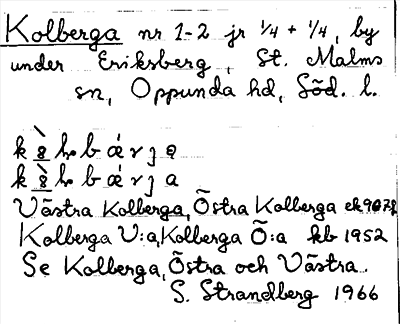 Kolberga nr 1-2 jr 1/4 + 1/4, by
under Eriksberg, St. Malms
sn, Oppunda hd, Söd. l.
Västra Kolberga, Östra Kolberga ek
Kolberga V:a, Kolberga Ö:a kb 1952
Se Kolberga, Östra och Västra.
S. Strandberg 1966